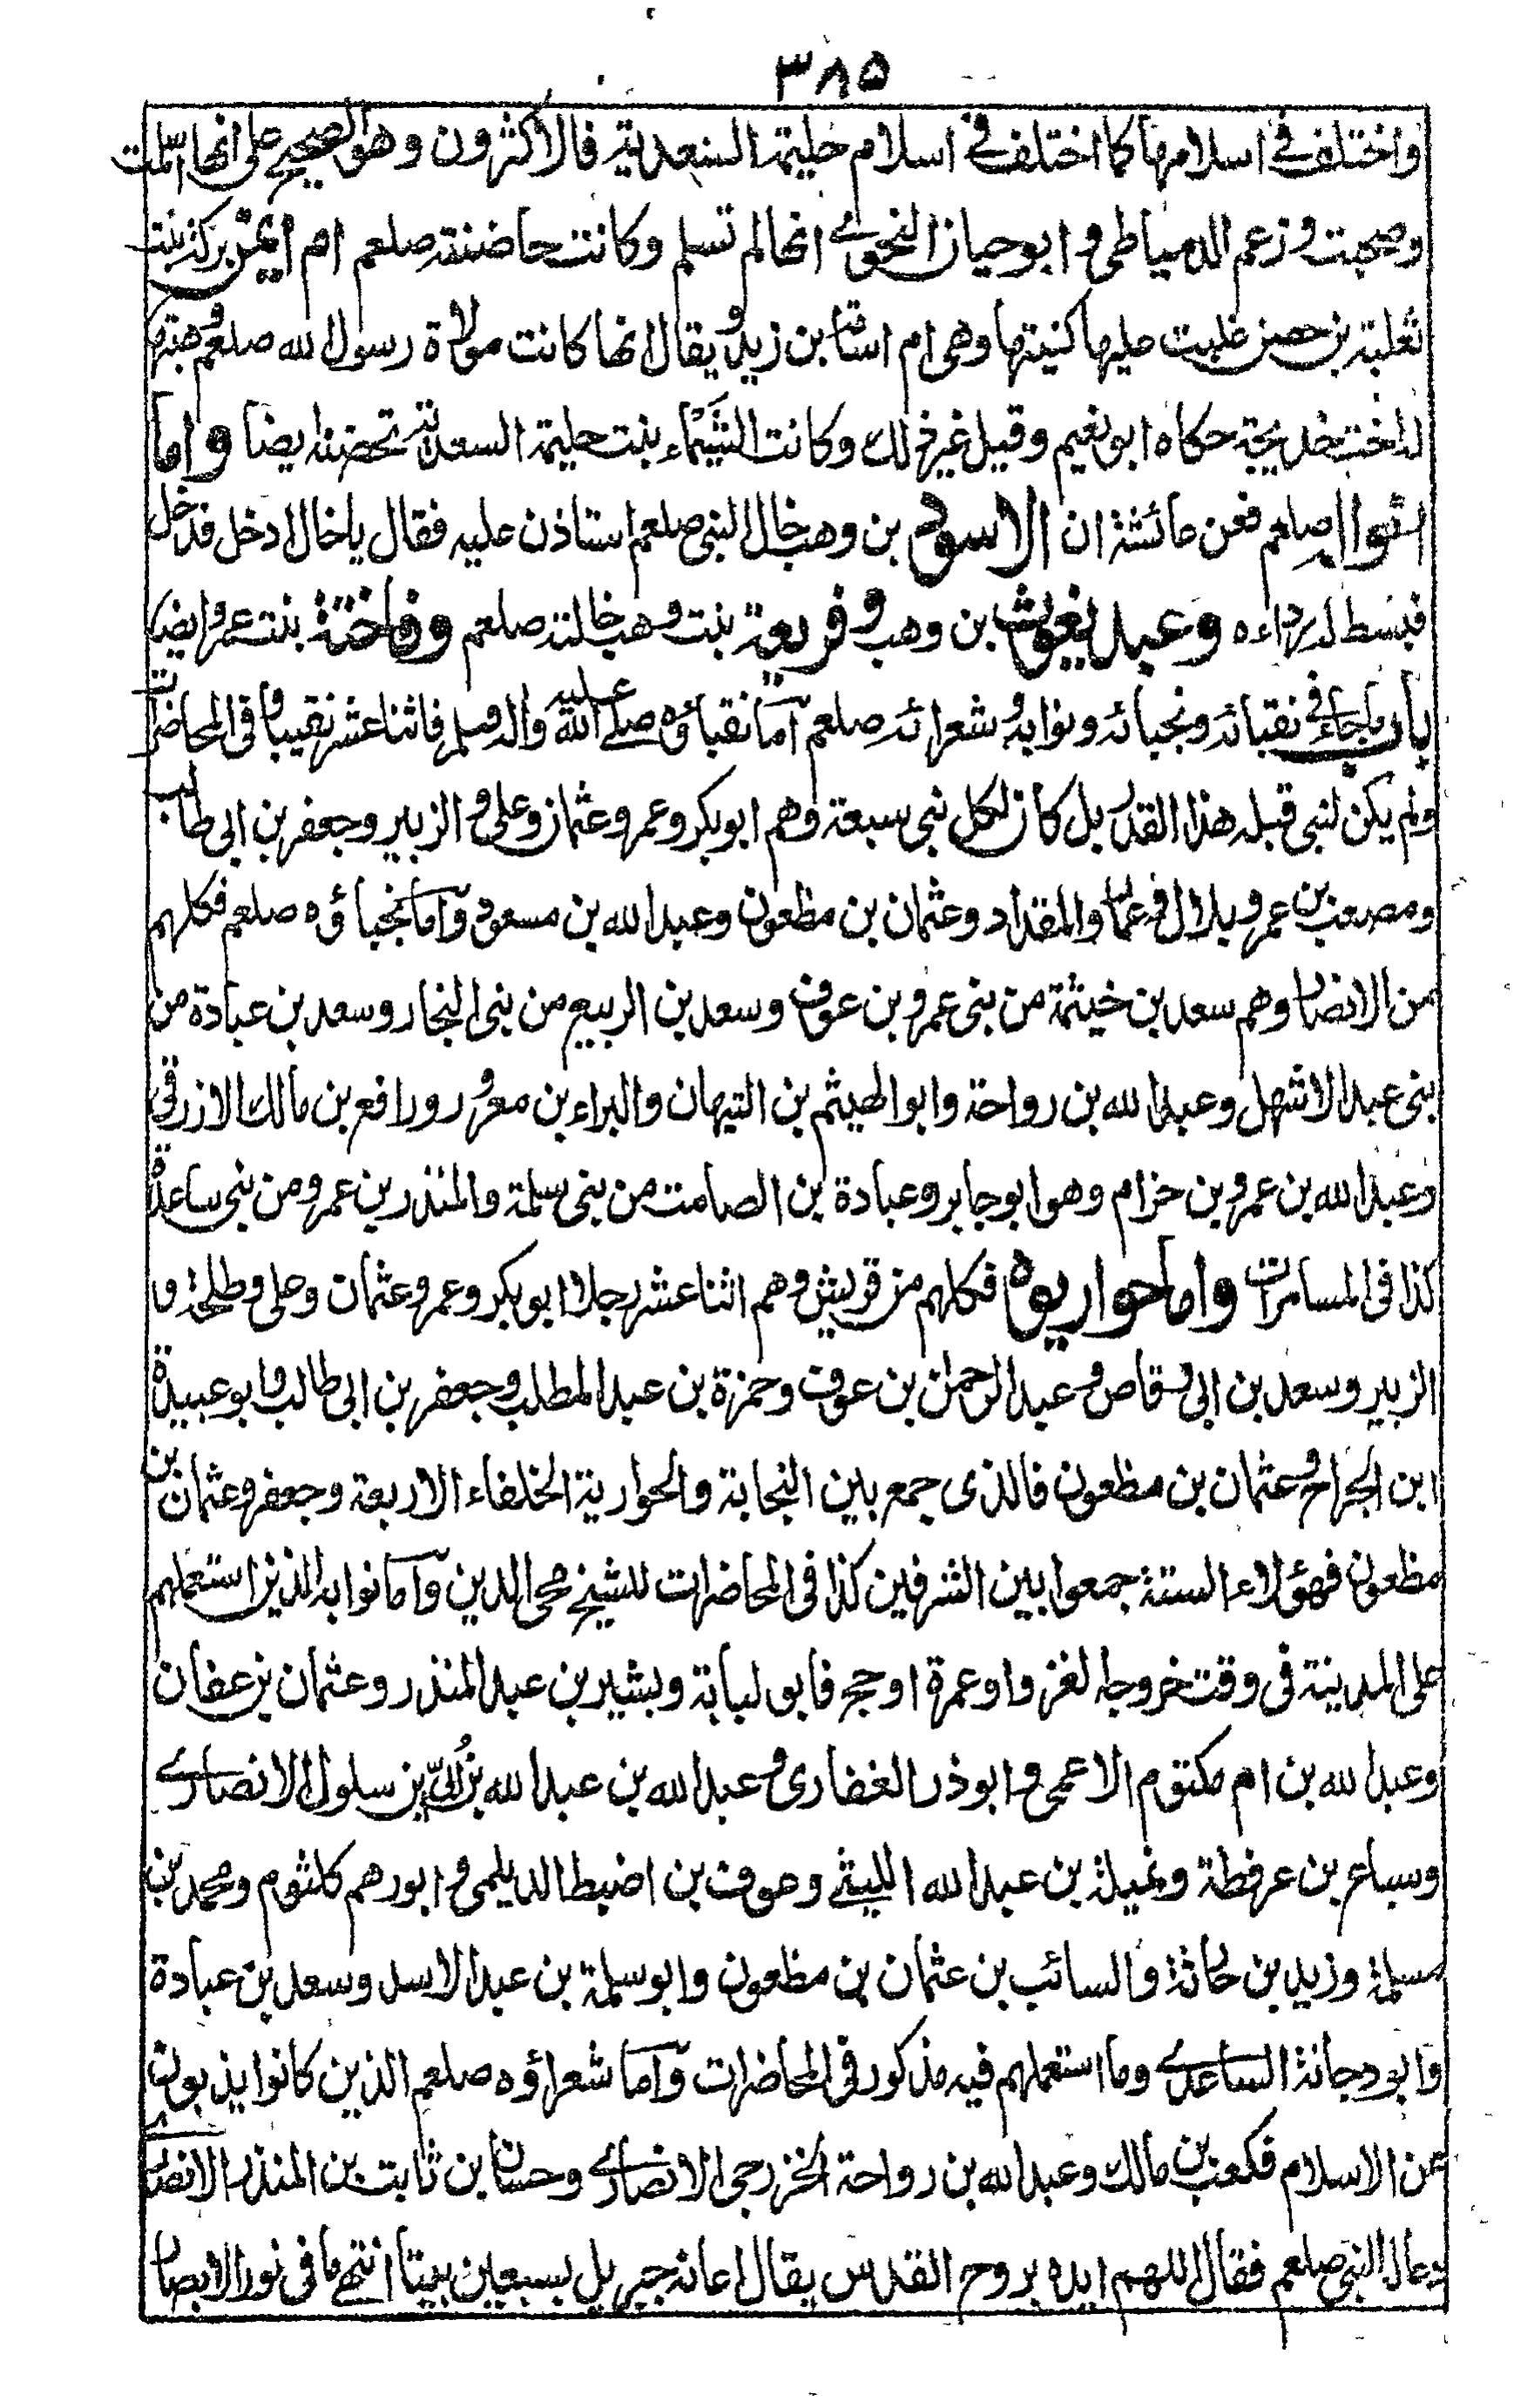 ٣٨٥
واختلف في اسلامها كما اختلف في اسلام حليمة السعدية فالاكثرون وهو الصحيح على انها اسلمت
وصحبت وزعم الدمياطي و ابو حيان النحوي انها لم تسلم وكانت حاضنته صلعم ام ايمن بركة بنت
ثعلبة بن حصن غلبت عليها كنيتها وهي ام اسامة بن زيد ويقال انها كانت مولاة رسول الله صلعم وهبتها
له اخت خديجة حكاه ابو نعيم وقيل غير ذلك وكانت الشيماء بنت حليمة السعدية تحضنه ايضا واما
اخواله صلعم فعن عائشة ان الاسود بن وهب خال النبي صلعم استاذن عليه فقال يا خال ادخل فدخل
فبسط له رداءه وعبد يغوث بن وهب و فريعة بنت وهب خالته صلعم وفاختة بنت عمرو ايضا
باب ما جاء في نقبائه ونجبائه ونوابه وشعرائه صلعم اما نقباؤه صلى الله عليه واله وسلم فاثنا عشر نقيبا وفي المحاضرات
ولم يكن لنبي قبله هذا القدر بل كان لكل نبي سبعة وهم ابو بكر وعمر وعثمان وعلي و الزبير وجعفر بن ابي طالب
ومصعب بن عمرو بلال وعمار والمقداد وعثمان بن مظعون وعبد الله بن مسعود واما نجباؤه صلعم فكلهم
من الانصار وهم سعد بن خيثمة من بني عمرو بن عوف وسعد بن الربيع من بني النجار وسعد بن عبادة من
بني عبد الاشهل وعبد الله بن رواحة وابو الهيثم بن التيهان والبراء بن معرور ورافع بن مالك الازرقي
وعبد الله بن عمرو بن حزام وهو ابو جابر وعبادة بن الصامت من بني سلمة والمنذر بن عمرو من بني ساعدة
كذا في المسامرات واما حواريوه فكلهم من قريش وهم اثنا عشر رجلا ابو بكر وعمر وعثمان وعلي وطلحة و
الزبير وسعد بن ابي وقاص وعبد الرحمن بن عوف وحمزة بن عبد المطلب وجعفر بن ابي طالب وابو عبيدة
ابن الجراح وعثمان بن مظعون فالذي جمع بين النجابة والحوارية الخلفاء الاربعة وجعفر وعثمان بن
مظعون فهؤلاء الستة جمعوا بين الشرفين كذا في المحاضرات للشيخ محي الدين واما نوابه الذين استعملهم
على المدينة في وقت خروجه لغزو او عمرة او حج فابو لبابة وبشير بن عبد المنذر وعثمان بن عفان
وعبد الله بن ام مكتوم الاعمى و ابو ذر الغفاري وعبد الله بن عبد الله بن ابيّ بن سلول الانصاري
وسباع بن عرفطة ونميلة بن عبد الله الليثي وعوف بن اضبط الديلمي و ابو رهم كلثوم ومحمد بن
مسلمة وزيد بن حارثة والسائب بن عثمان بن مظعون وابو سلمة بن عبد الاسد وسعد بن عبادة
وابو دجانة الساعدي وما استعملهم فيه مذكور في المحاضرات واما شعراؤه صلعم الذين كانوا يذبون
عن الاسلام فكعب بن مالك وعبد الله بن رواحة الخزرجي الانصاري وحسان بن ثابت بن المنذر الانصاري
دعا له النبي صلعم فقال اللهم ايده بروح القدس يقال اعانه جبريل بسبعين بيتا انتهى ما في نور الابصار